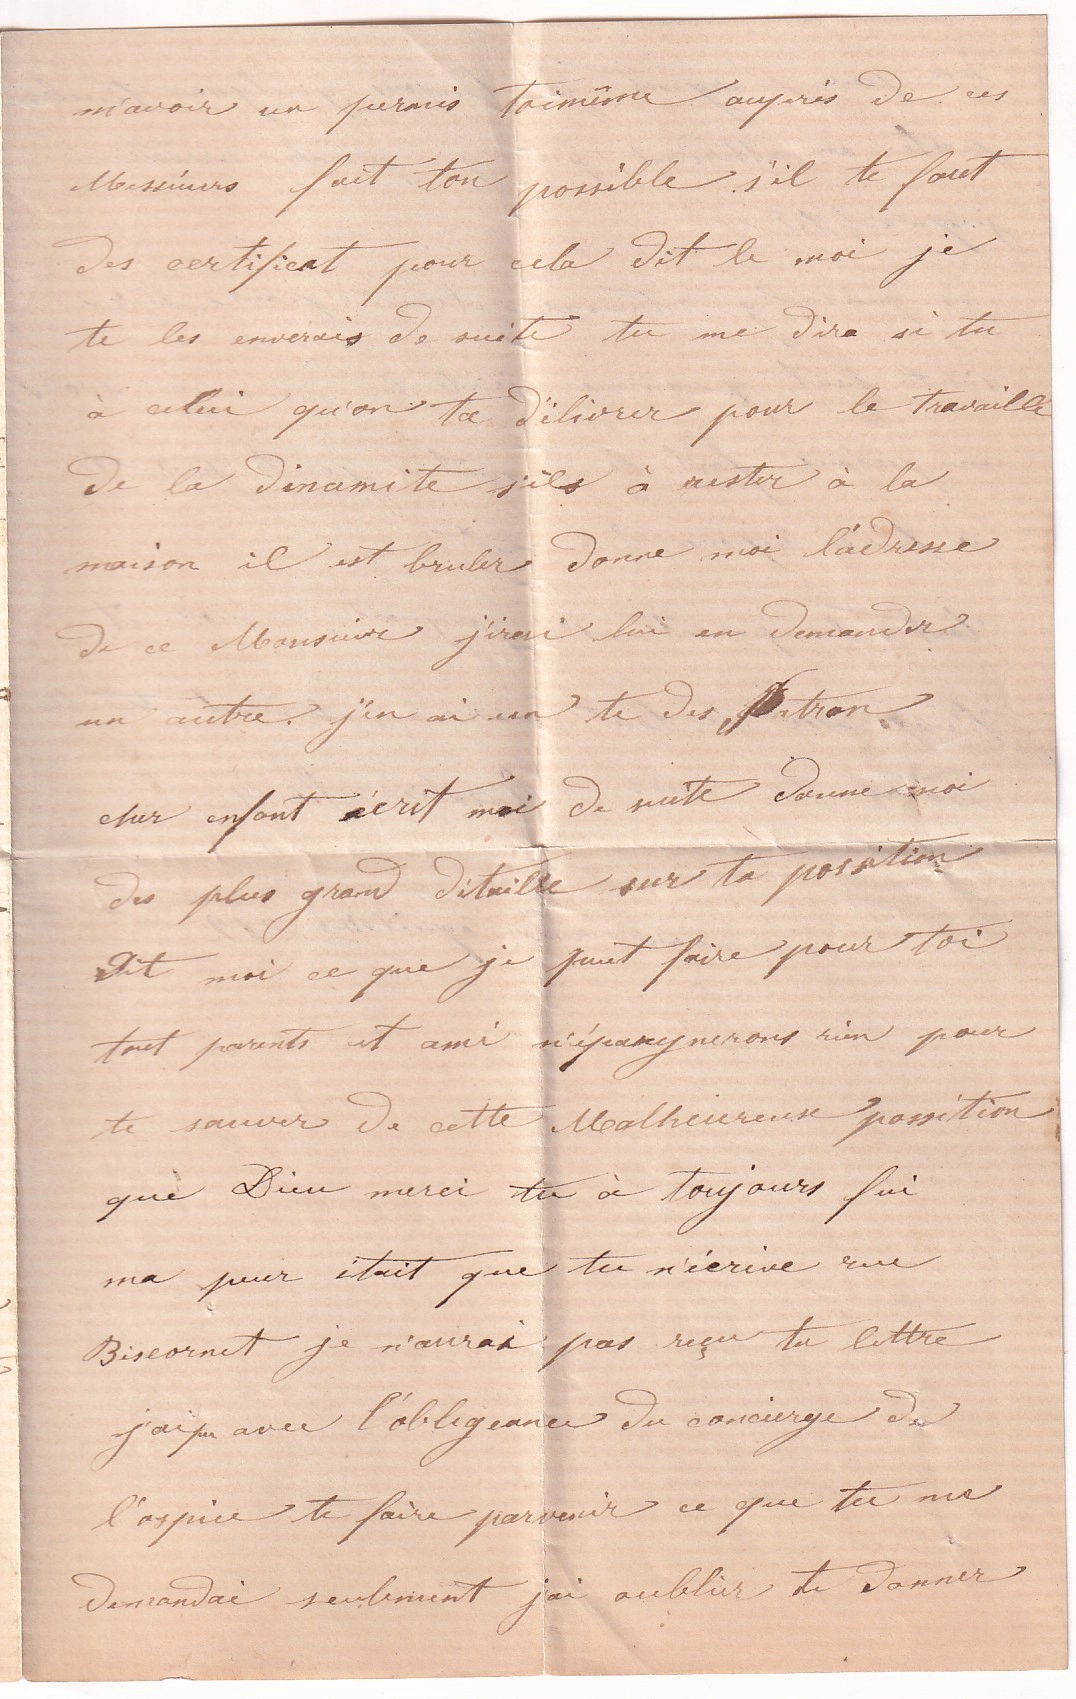 m'avoir un permis toimême auprès de ces
Messieurs fait ton possible s'il te faut
des certificat pour cela dit le moi je
te les enverais de suite tu me dira si tu
à celui qu'on ta délivrer pour le travaille
de la dinamite s'ils à rester à la
maison il est bruler donne moi l'adresse
de ce Monsieur j'irai lui en demander
un autre. j'en ai un te des Patron
cher enfant écrit moi de suite donne moi
des plus grand détaille sur ta possition
Dit moi ce que je peut faire pour toi
tout parents et ami n'épargnerons rien pour
te sauver de cette Malheureuse possition
que Dieu merci tu à toujours fui
ma peur était que tu n'écrive rue
Biscornet je n'aurai pas reçu ta lettre
j'ai pu avec l'obligeance du concierge de
l'ospice te faire parvenir ce que tu me
demandai seulement j'ai oublier te donner